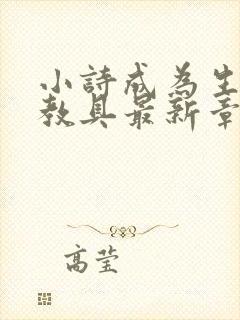 小詩成為生
教具最新章
高莹